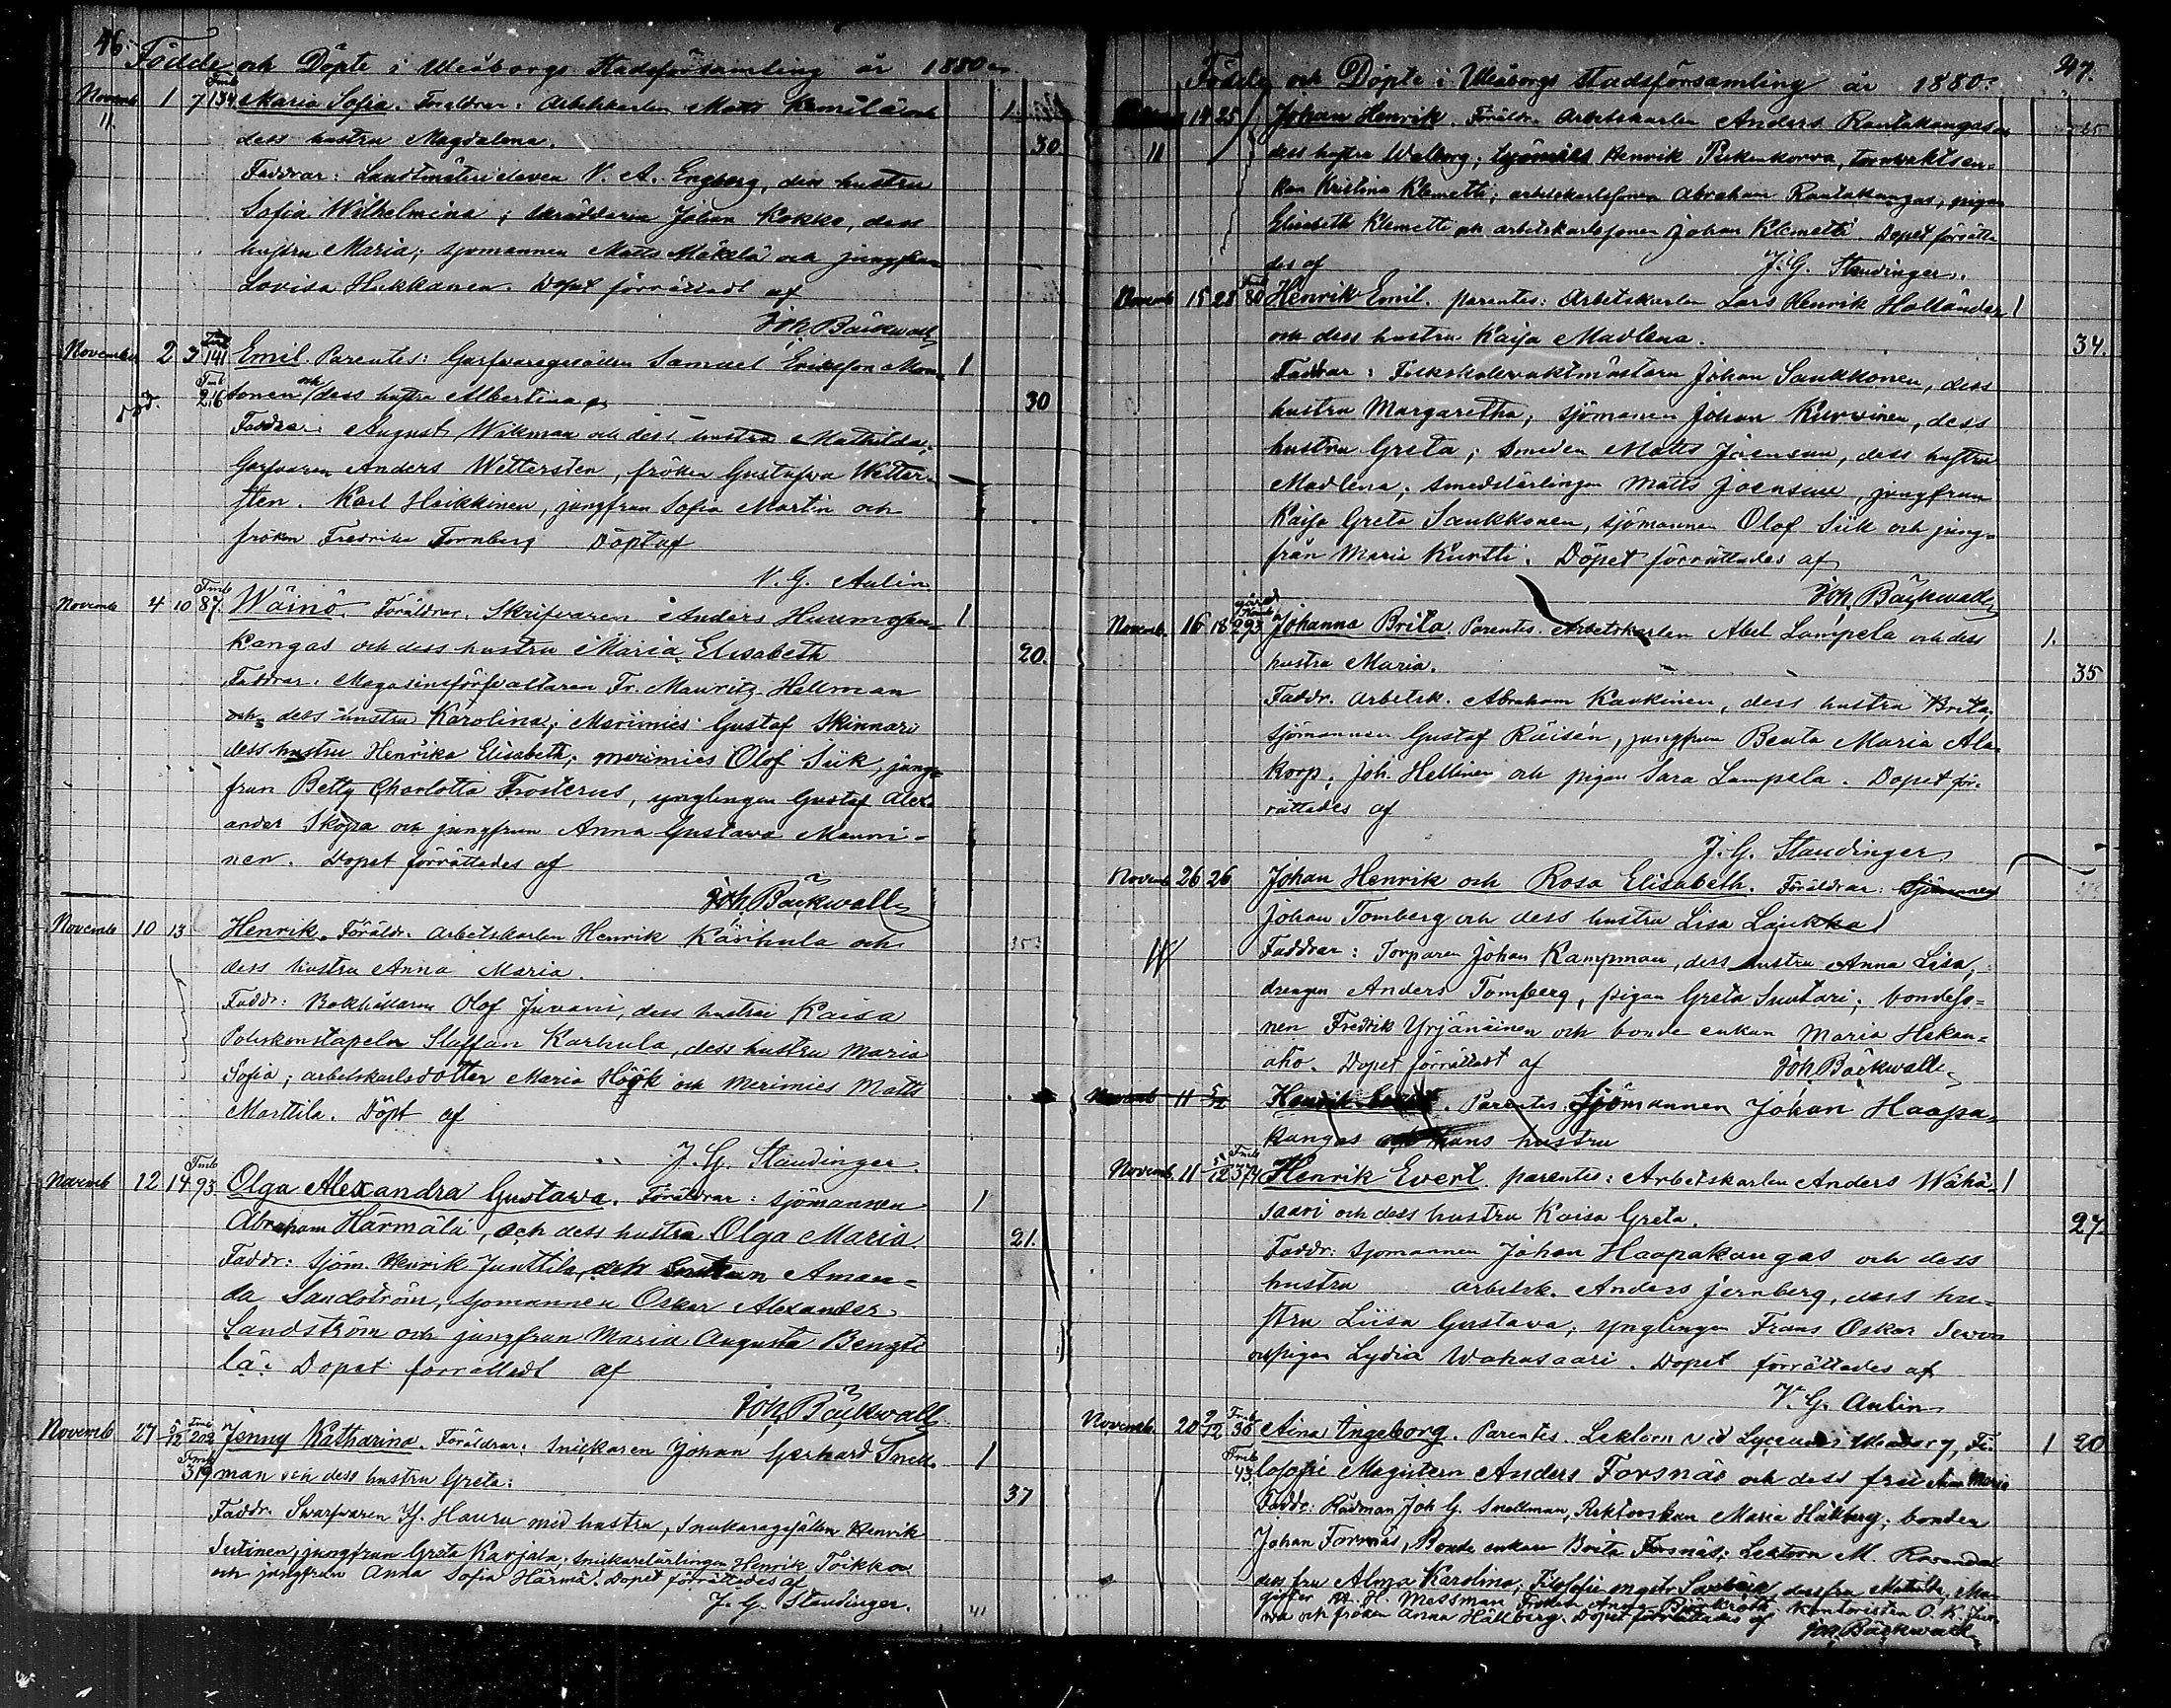 46.
Födde och Döpte i Uleåborgs Stadsförsamling år 1880.
Novemb 1 7 Tmb 134 Maria Sofia. Föräldrar: Arbetskarlen Matts 1
11. dess hustru Magdalena. 30
Faddrar: Landtmäterieleven V. A. Engberg, dess hustru
Sofia Wilhelmina; skräddaren Johan Kokko, dess
hustru Maria; sjömannen Matts Mäkelä och jungfrun
Lovisa Hukkanen. Dopet förrättadt af
Joh. Bäckwall
November 2 7 141 Emil. Parentes: Garfvaregesällen Samuel Eriksson 1
Tmb 216 tonen och dess hustru Albertina 30
Faddrar: August Wikman och dess hustru Mathilda;
Garfvaren Anders Wettersten, fröken Gustafva Wetter-
sten. Karl Heikkinen, jungfrun Sofia Martin och
fröken Fredrika Tornberg Döpt af
V. G. Aulin.
Novemb 4 10 Tmb 87. Wäinö. Föräldrar. Skrifvaren Anders Huumosen- 1
kangas och dess hustru Maria Elisabeth 20.
Faddrar. Magasinsförvaltaren Fr. Mauritz Hellman
och dess hustru Karolina; Merimies Gustaf Skinnari
dess hustru Henrika Elisabeth; merimies Olof Siik, jung-
frun Betty Charlotta Frosterus, ynglingen Gustaf Alex-
ander Sköpa och jungfrun Anna Gustava Manni-
nen. Dopet förrättades af
Joh. Bäckwall
Novemb 10 13 Henrik. Föräldr. Arbetskarlen Henrik Karihula och
dess hustru Anna Maria.
Faddr: Bokhållaren Olof Juvani, dess hustru Kaisa
Poliskonstapeln Staffan Karhula, dess hustru Maria
Sofia; arbetskarlsdotter Maria Höök och Merimies Matts
Marttila. Döpt af
J. G. Staudinger
Novemb 12 14 Tmb 93 Olga Alexandra Gustava. Föräldrar: sjömannen 1
Abraham Härmälä, och dess hustru Olga Maria. 21.
Faddr: Sjöm. Henrik Junttila, Aman-
da Sandström, sjömannen Oskar Alexander
Sandström och jungfrun Maria Augusta Bengts
lä. Dopet förrättadt af
Joh. Bäckwall
Novemb 27 5/12 Tmb 202 Jenny Katharina. Föräldrar: Snickaren Johan Gerhard Snell- 1
Tmb 319 man och dess hustru Greta. 37
Faddr. Svarfvaren Hauru med hustru, Snickaregesällen Henrik
Sutinen, jungfrun Greta Karjala, Snickarelärlingen Henrik Toikkoa
och jungfrun Anna Sofia Härmä. Dopet förrättades af
J. G. Staudinger.
41
47.
Födde och Döpte i Uleåborgs Stadsförsamling år 1880.
14 25 Johan Henrik. Föräldr. Arbetskarlen Anders Rautakangas 25
11 dess hustru Walborg; Henrik Pukenkorva, tornvaktsen-
kan Kristina Klemetti; arbetskarlssonen Abraham Rautakangas, pigan
Elisabeth Klemetti och arbetskarlssonen Johan Klemetti. Dopet förrätta-
des af J. G. Staudinger.
Novemb 15 28 Tmb 80 Henrik Emil. parentes: Arbetskarlen Lars Henrik Holländer 1
och dess hustru Kaisa Madlena. 34.
Faddrar: Folkskolevaktmästaren Johan Saukkonen, dess
hustru Margaretha; sjömannen Johan Kurvinen, dess
hustru Greta; smeden Matts Joensuu, dess hustru
Madlena; smedslärlingen Matts Joensuu, jungfrun
Kaisa Greta Saukkonen, sjömannen Olof Siik och jung-
frun Maria Kurtti. Dopet förrättades af
Joh. Bäckwall
Novemb. 16 18 293 Johanna Brita. Parentes. Arbetskarlen Abel Lampela och dess 1.
hustru Maria. 35
Faddr. Arbetsk. Abraham Kaukinen, dess hustru Brita;
Sjömannen Gustaf Räisén, jungfrun Beata Maria Ala-
korp. Joh. Hellinen och pigan Sara Lampela. Dopet för-
rättades af
J. G. Staudinger
Novemb 26 26 Johan Henrik och Rosa Elisabeth. Föräldrar: Sjömannen
Johan Tomberg och dess hustru Lisa Laukka
Faddrar: Torparen Johan Kampman, dess hustru Anna Lisa,
drengen Anders Tomberg, pigan Greta Suutari; bondeso-
nen Fredrik Yrjänäinen och bonde enkan Maria Hekan-
aho. Dopet förrättadt af Joh. Bäckwall
Novemb 11 5/12 Henrik Evert. Parentes: Sjömannen Johan Haapa-
kangas och hans hustru
Novemb. 11 5/12 Tmb 374 Henrik Evert. parentes: Arbetskarlen Anders Wähä- 1
saari och dess hustru Kaisa Greta. 27.
Faddr: sjömannen Johan Haapakangas och dess
hustru arbetsk. Anders Jernberg, dess hu-
stru Liisa Gustava, ynglingen Frans Oskar
pigan Lydia Wähäsaari. Dopet förrättades af
V. G. Aulin
Novemb 20 2/12 Tmb 36 Aina Ingeborg. Parentes. Lektorn vid Lyceum i Uleåborg, Fi- 1 20
Tmb 43 losofie Magistern Anders Forsnäs och dess fru Maria
Faddr: Rådman Joh G. Snellman, Rektorskan Maria Hällberg; bonden
Johan Forsnäs, Bonde enkan Brita Forsnäs; Lektorn M. Rosendal
dess fru Alma Karolina; Filosofie magister dess fru Mathilda, Ma-
gister H. Messman Fröken Anna Björkroth. Kontoristen O. K.
och fröken Anna Hällberg. Dopet förrättades af Joh. Bäckwall